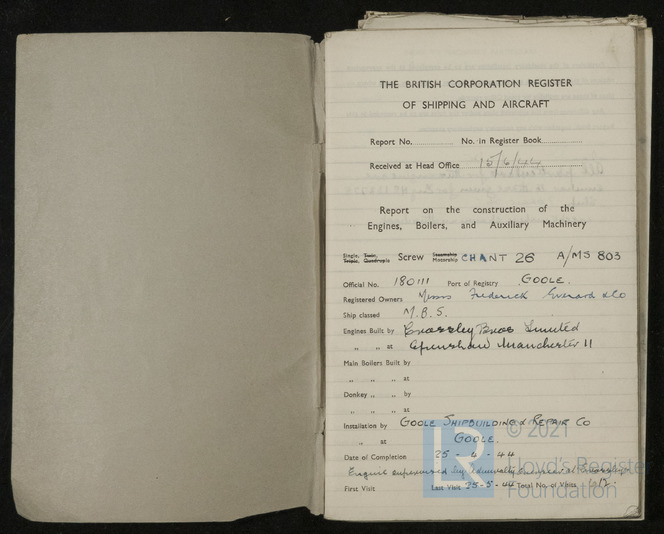 THE BRITISH CORPORATION REGISTER
OF SHIPPING AND AIRCRAFT
Report No. No. in Register Book
Received at Head Office 15/6/44
Report on the construction of the
Engines, Boilers, and Auxiliary Machinery
Single, Twin, Triple, Quadruple Screw Steamship Motorship CHANT 26 A/MS 803
Official No. 180111 Port of Registry GOOLE.
Registered Owners Messrs Frederick Everard & Co
Ship classed M.B.S.
Engines Built by Crossley Bros Limited
„ „ at Openshaw Manchester 11
Main Boilers Built by
„ „ „ at
Donkey „ „ by
„ „ „ at
Installation by GOOLE SHIPBUILDING & REPAIR Co
„ at GOOLE.
Date of Completion 25 - 4 - 44
Engine supervised by
First Visit Last Visit 25-5-44 Total No. of Visits
LR
© 2021
Lloyd's Register
Foundation